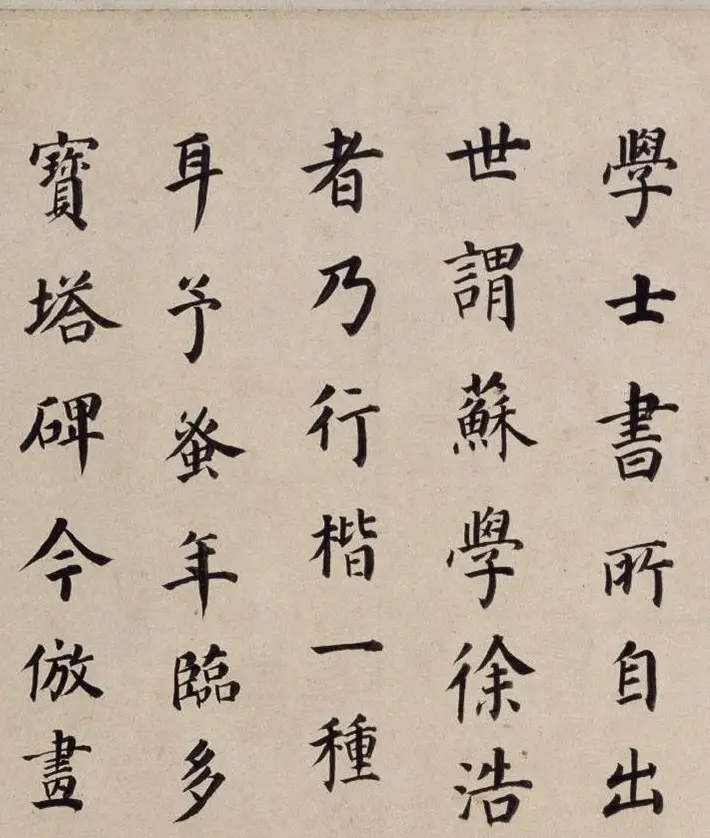 學士書所自出
世謂蘇學徐浩
者乃行楷一種
耳予蚤年臨多
寶塔碑今倣畫